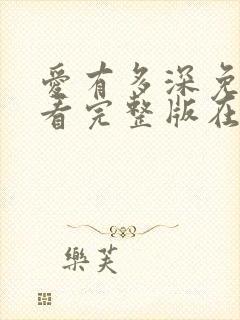 愛有多深免
看完整版在
樂芙